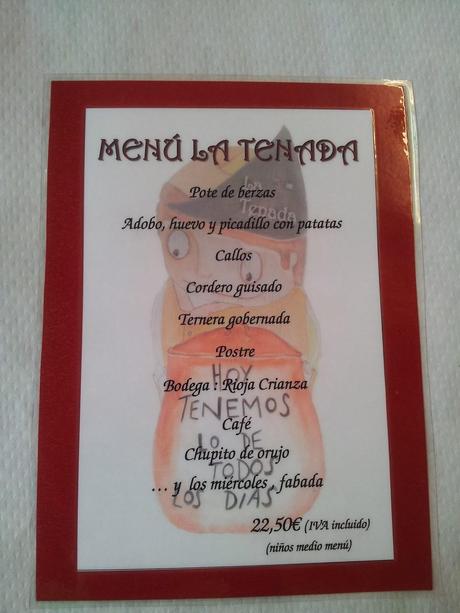 MENÚ LA TENADA
La
Tenada
Pote de berzas
Adobo, huevo y picadillo con patatas
Callos
Cordero guisado
Ternera gobernada
Postre
Bodega : Rioja Crianza
Café
Chupito de orujo
... y los miércoles , fabada
HOY
TENEMOS
LO DE
TODOS
LOS DIAS
22,50€ (IVA incluido)
(niños medio menú)